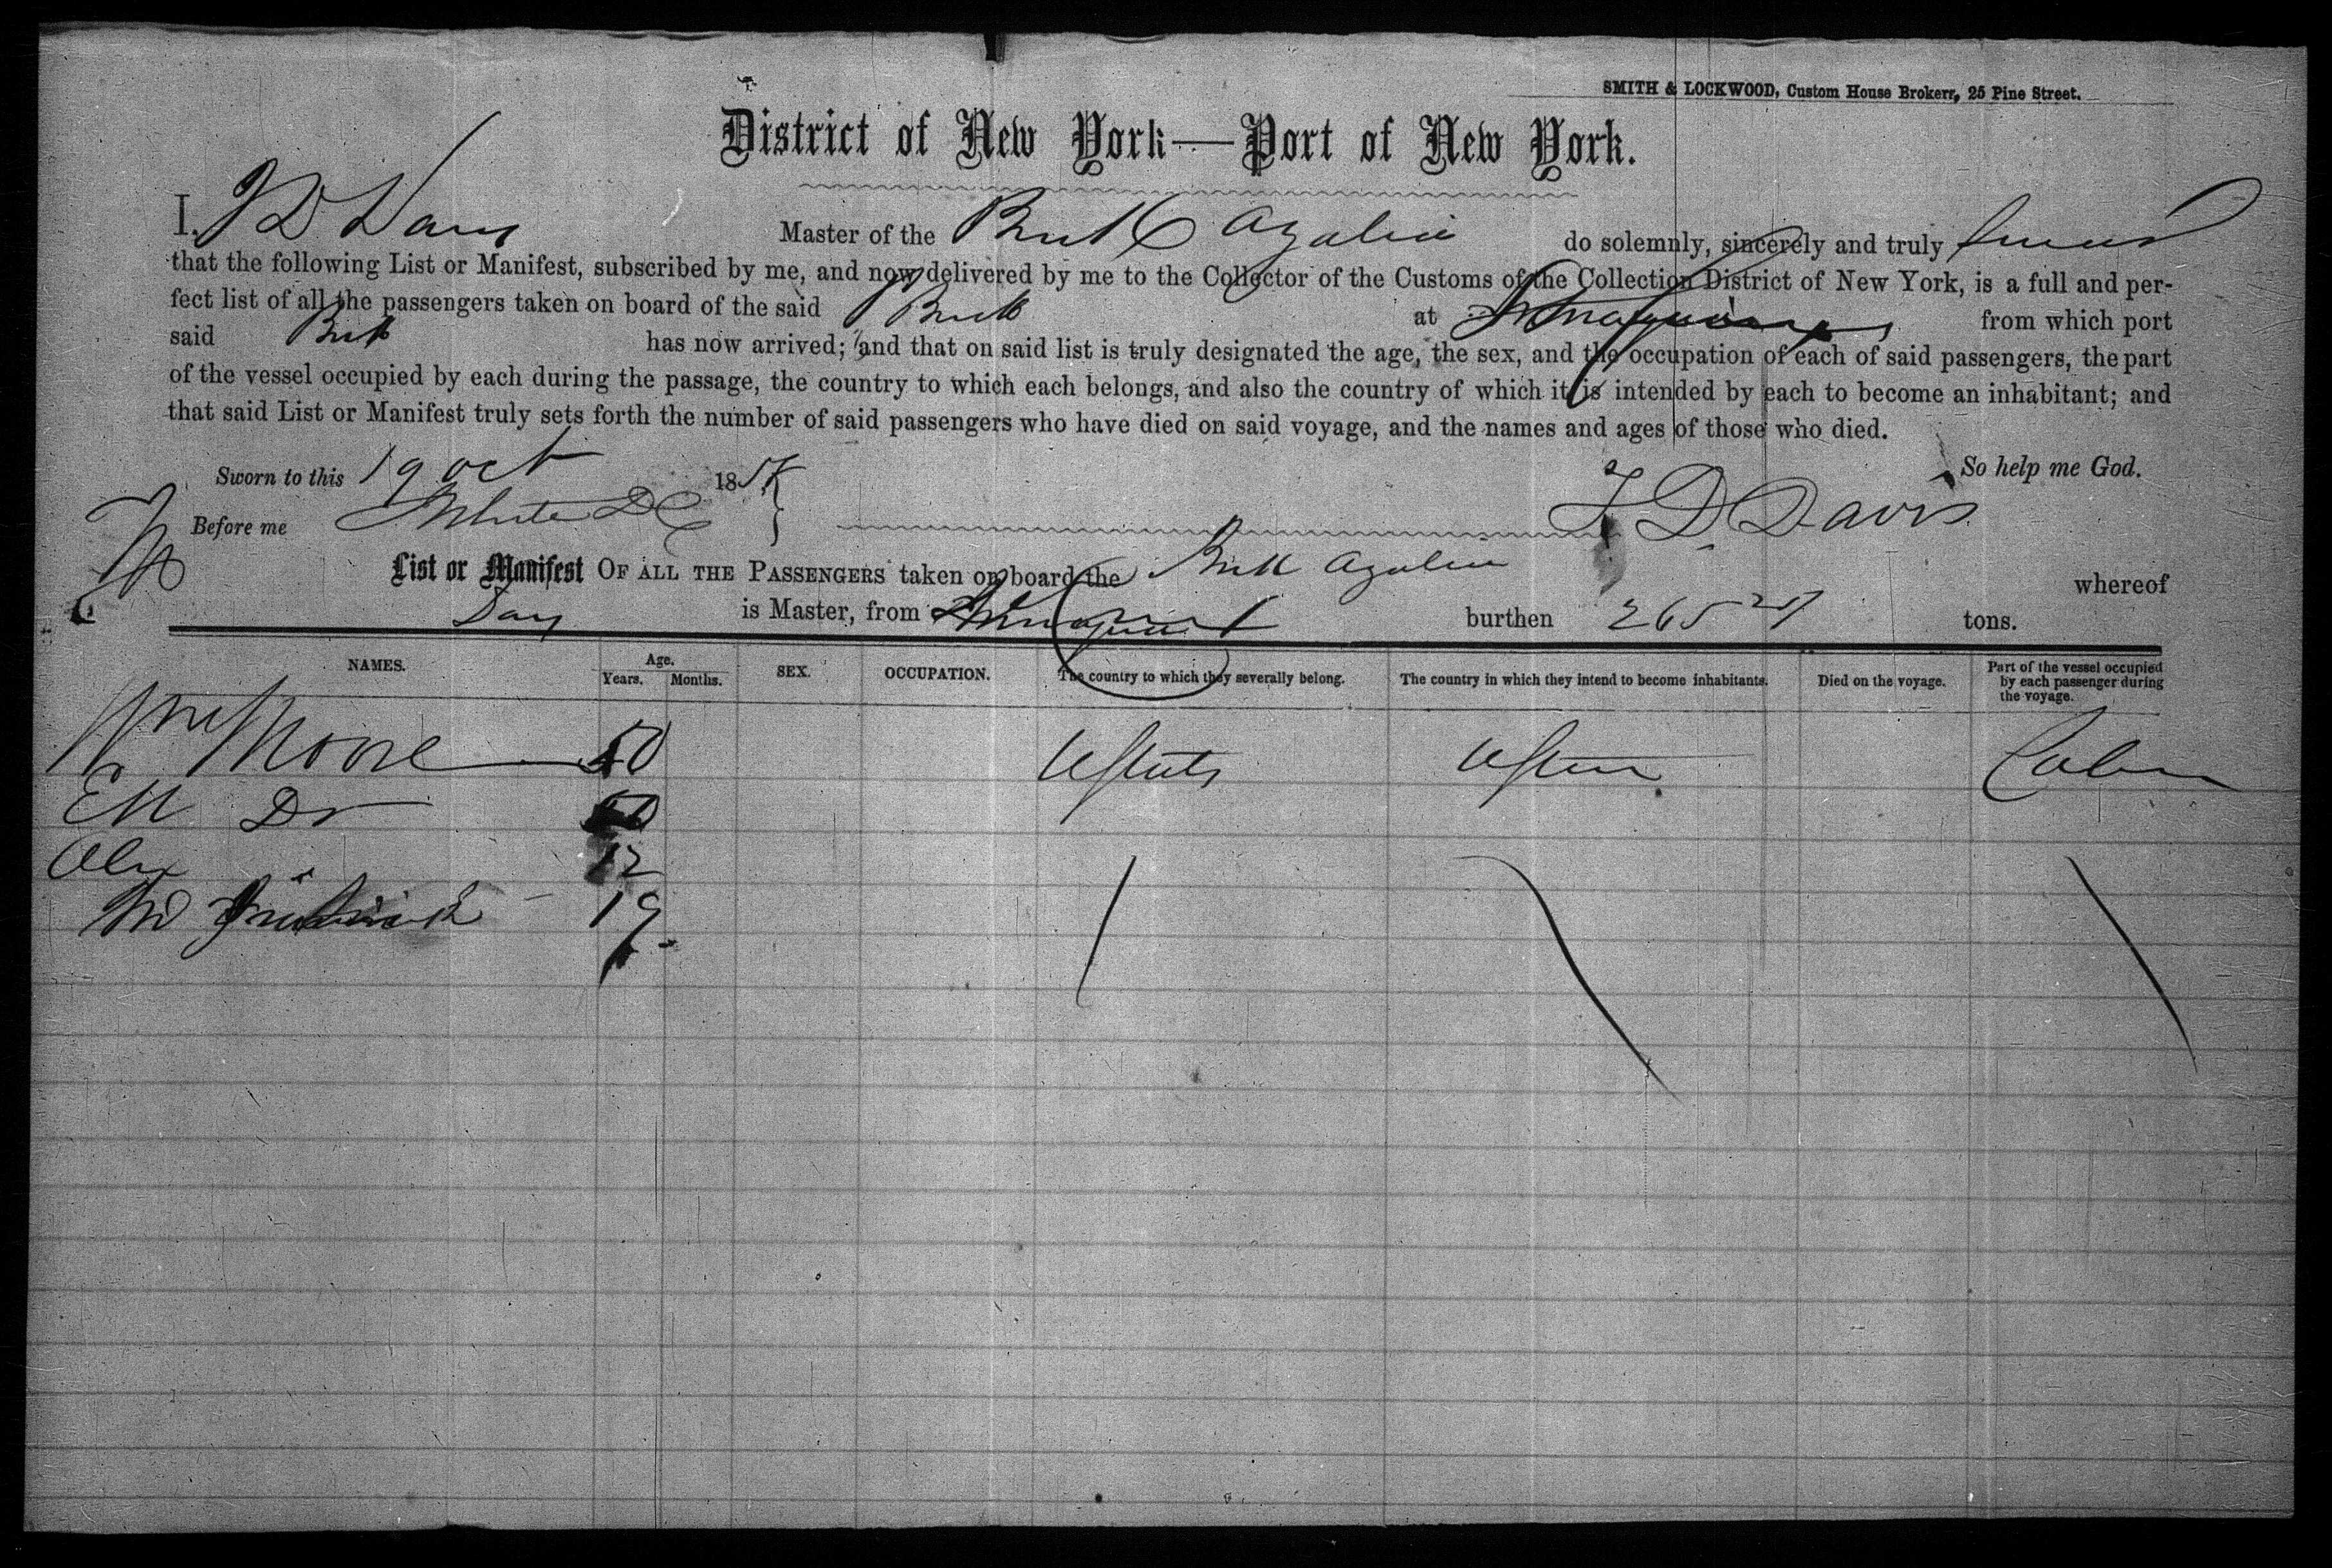 SMITH & LOCKWOOD, Custom House Brokers, 25 Pine Street.
District of New York—Port of New York.
I, Master of the do solemnly, sincerely and truly swear
that the following List or Manifest, subscribed by me, and now delivered by me to the Collector of the Customs of the Collection District of New York, is a full and per-
fect list of all the passengers taken on board of the said at from which port
said has now arrived; and that on said list is truly designated the age, the sex, and the occupation of each of said passengers, the part
of the vessel occupied by each during the passage, the country to which each belongs, and also the country of which it is intended by each to become an inhabitant; and
that said List or Manifest truly sets forth the number of said passengers who have died on said voyage, and the names and ages of those who died.
Sworn to this 19 Oct 18 So help me God.
Before me D Davis
List or Manifest OF ALL THE PASSENGERS taken on board the whereof
is Master, from burthen 265 tons.
NAMES. Age. Years. Months. SEX. OCCUPATION. The country to which they severally belong. The country in which they intend to become inhabitants. Died on the voyage. Part of the vessel occupied by each passenger during the voyage.
Wm Moore UStates Cabin
Do
12
19